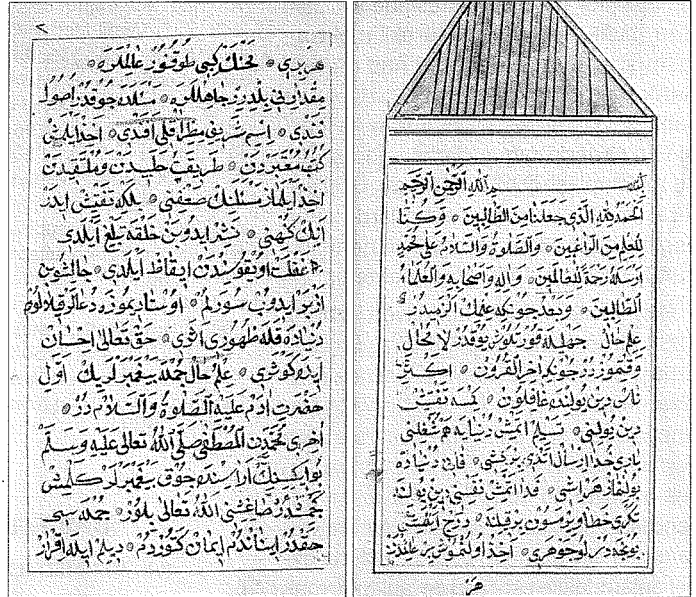 بسم الله الرحمن الرحيم
الحمد لله الذى جعلنا من الطالبين * وكنا
للمعلم من الراغبين * والصلوة والسلام على محمد
ارسله رحمة للعالمين * واله واصحابه والعلماء
الطالبين * وبعد جونكه علمك الزميدر
علم حال جهلله قورتلوش يوقدر لا محال
وقتموزدر جونكه اخر القرون * اكثر
ناس دين يولنده غافلون * كمسه تفتيش
دين يولنى * تسليم اتمش دنيايه هم شغلنى
بارى خدا ارسال اتدى بر كشى * فان دنياده
بولنماز هر اشى * فدا اتمش نفسنى دين يولنه
تكرى خطا ويرمسون بر قيلنه * درج
يوجه درلو جوهرى * اخذ اولنموش بر علمدر
هر
٢
هر يرى * كبى طوقوز عالملره *
مقدارنى بلدرر جاهللره * مسئله جوقدر اصول
فندى * اسم شريفى افندى * اخذ ايلمش
كتب معتبردن * طريقت حلبيدن وملتقيدن
اخذ ايلماز مسئلنك ضعفنى * بلكه تفتيش ايدر
انك كهنى * نشر ايدوبن خلقه تبليغ ايلدى
غفلت اويقوسندن ايقاظ ايلدى * حالشوين
ازبر ايدوب سورلم * اوستاديموزه دعالر قيلالوم
دنياده قله ظهورى اثرى * حق تعالى احسان
ايده كوثرى * علم حال جمله پيغمبرلريك اول
حضرت ادم عليه الصلوة والسلام در *
اخرى محمدن المصطفى صلى الله تعالى عليه وسلم
بو ايكسنك اراسنده جوق پيغمبرلر كلمش
كجمشدر صاغشنى الله تعالى بلور * جمله سى
حقدر ايناندم ايمان كتوردم * ديلم ايله اقرار